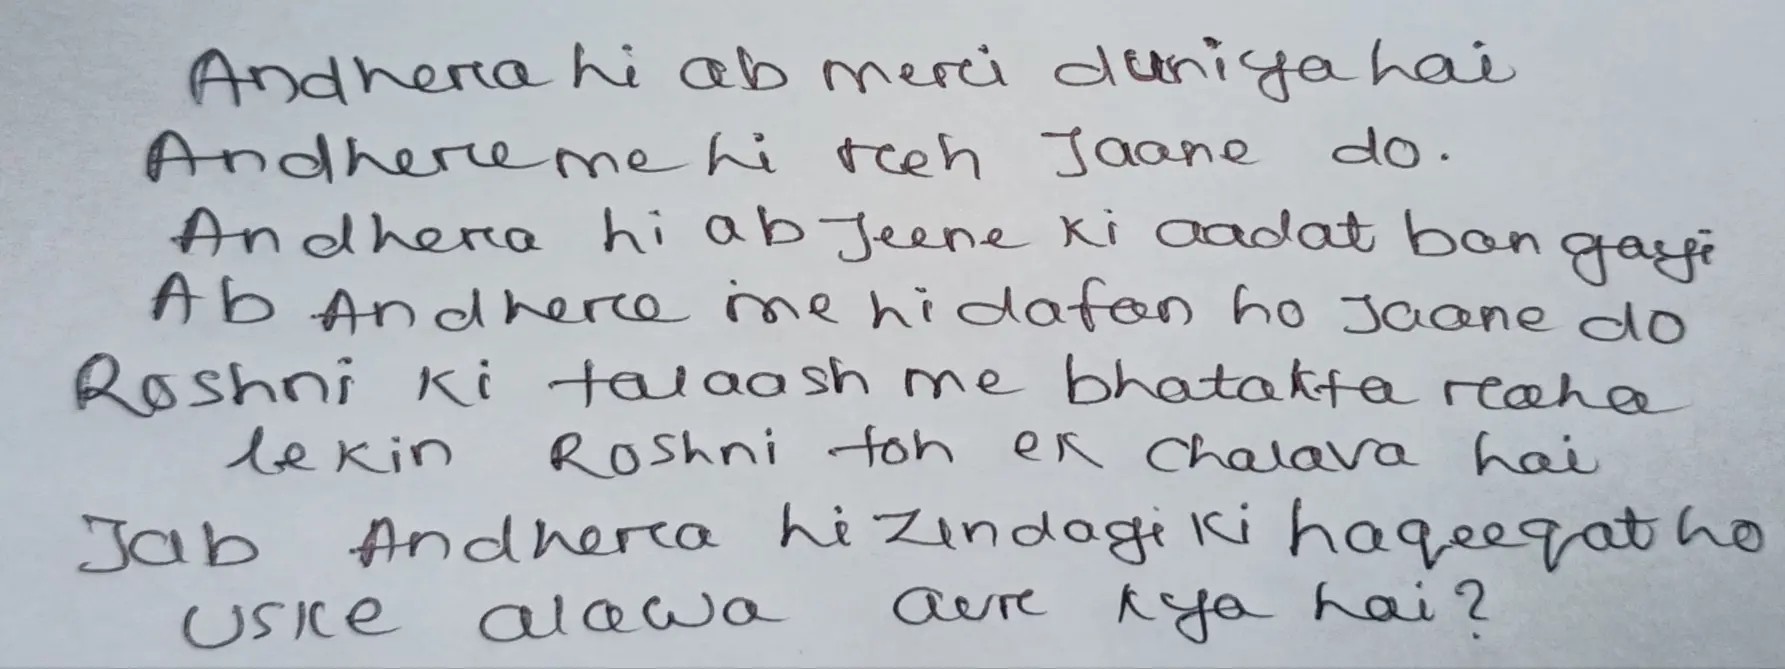 Andhera hi ab meri duniya hai
Andhere me hi reh Jaane do.
Andhera hi ab Jeene ki aadat ban gayi
Ab Andhere me hi dafan ho Jaane do
Roshni ki talaash me bhatakta raha
lekin Roshni toh ek Chalava hai
Jab Andhera hi zindagi ki haqeeqat ho
uske alawa aur kya hai?